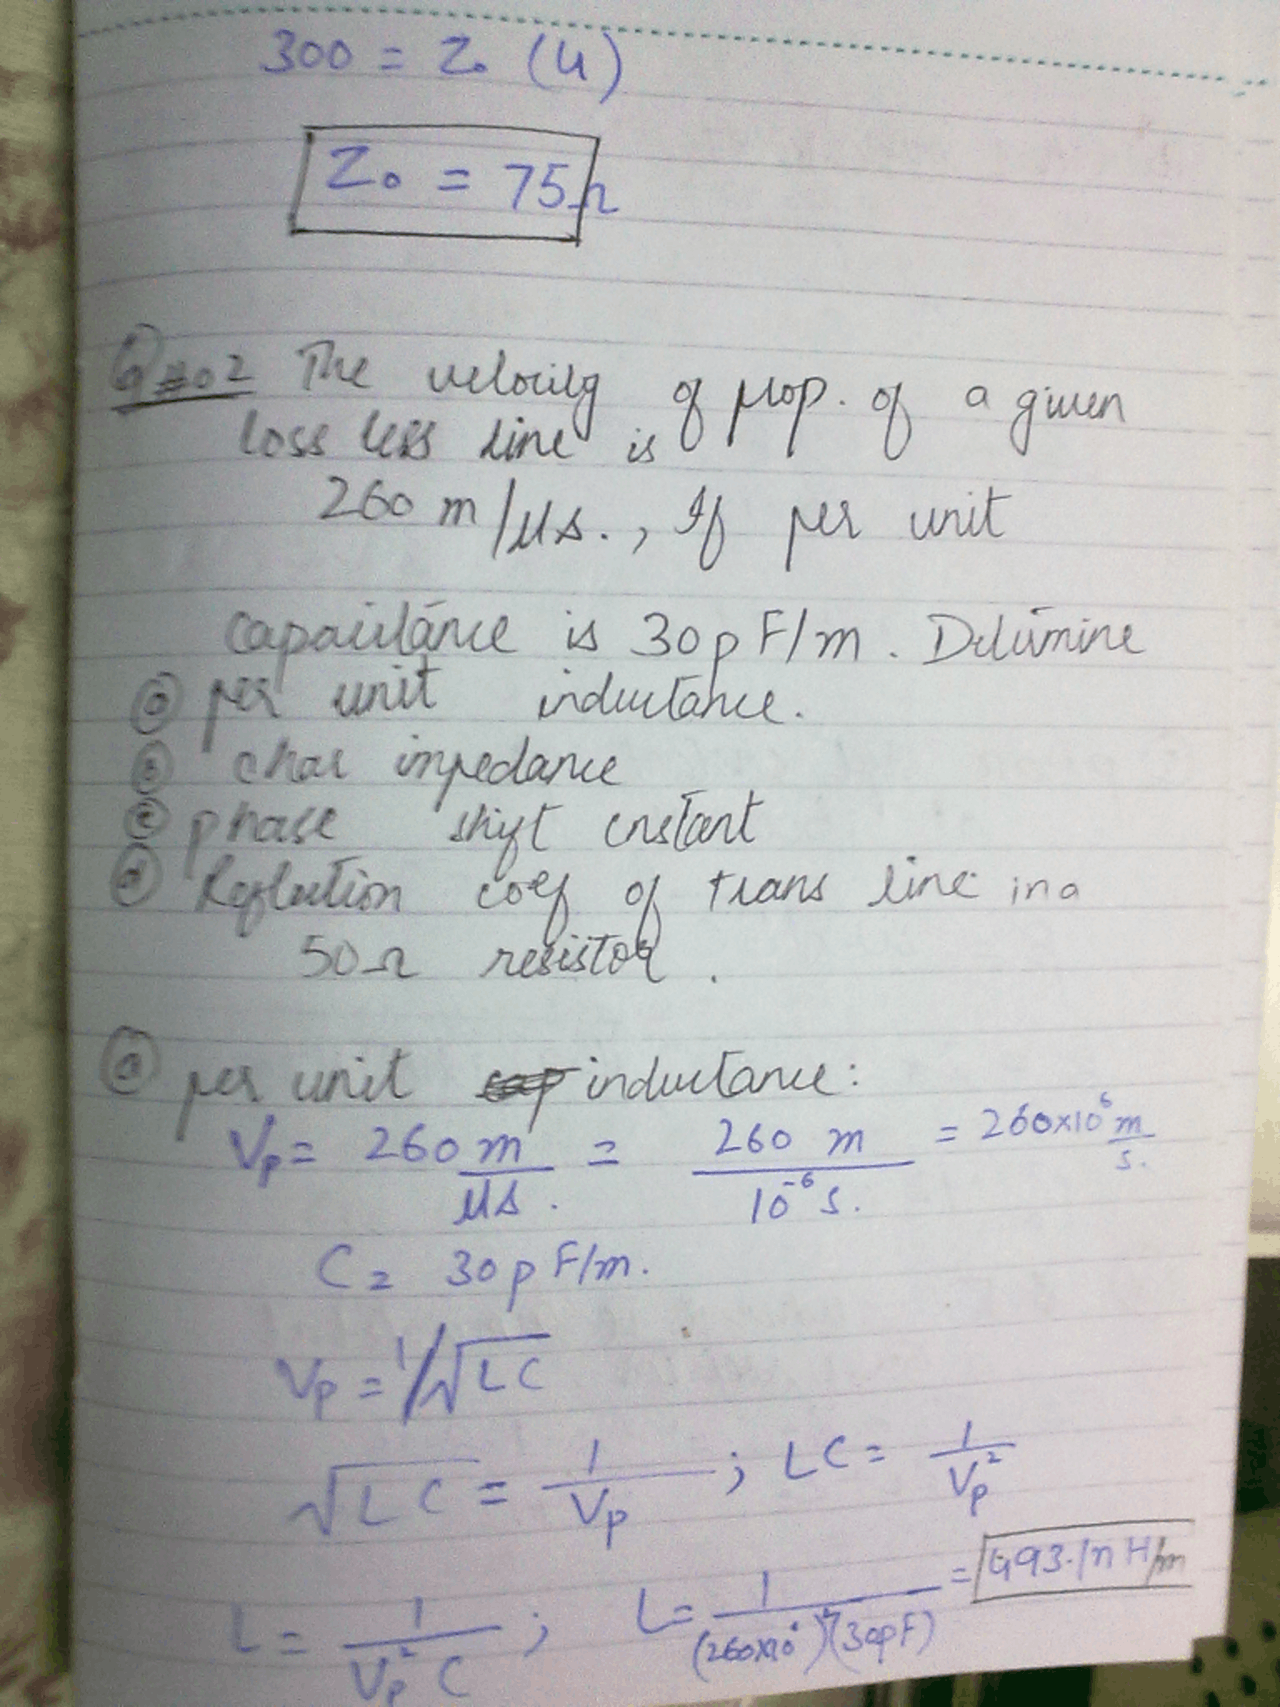 300 = Z₀ (4)
Z₀ = 75Ω
Q#02 The velocity of prop. of a given
loss less line is
260 m/μs., If per unit
capacitance is 30pF/m. Determine
ⓐ per unit inductance.
ⓑ char impedance
ⓒ phase shift cnstant
ⓓ Reflection coef of trans line in a
50Ω resistor.
ⓐ per unit inductance:
Vp = 260 m/μs. = 260 m / 10⁻⁶ s. = 260×10⁶ m/s.
C = 30p F/m.
Vp = 1/√LC
√LC = 1/Vp ; LC = 1/Vp²
L = 1/Vp² C ; L = 1/(260×10⁶)²(30pF) = 493.1n H/m